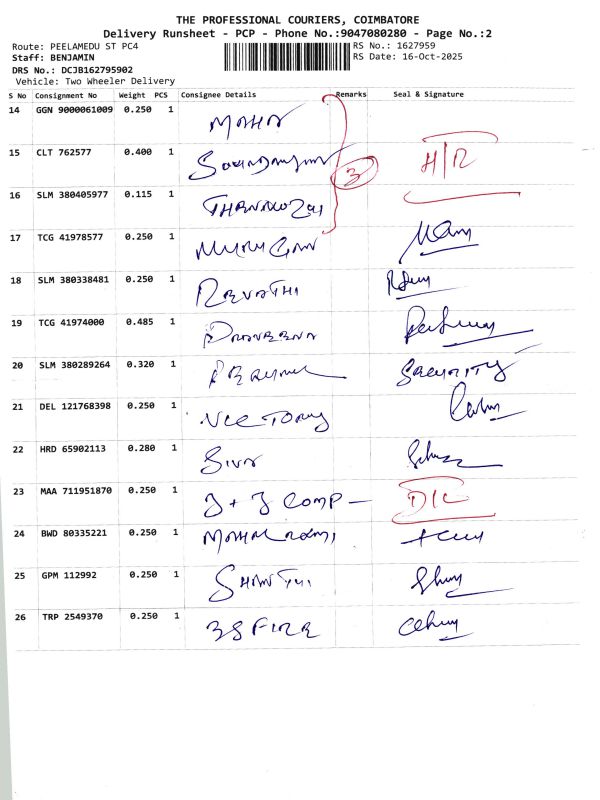 THE PROFESSIONAL COURIERS, COIMBATORE
Delivery Runsheet - PCP - Phone No.:9047080280 - Page No.:2
Route: PEELAMEDU ST PC4 RS No.: 1627959
Staff: BENJAMIN RS Date: 16-Oct-2025
DRS No.: DCJB162795902
Vehicle: Two Wheeler Delivery
S No Consignment No Weight PCS Consignee Details Remarks Seal & Signature
14 GGN 9000061009 0.250 1 MAHA
15 CLT 762577 0.400 1 3 H/R
16 SLM 380405977 0.115 1
17 TCG 41978577 0.250 1 MURUGAN
18 SLM 380338481 0.250 1 REVATHI
19 TCG 41974000 0.485 1 PRAVEENA
20 SLM 380289264 0.320 1 SECURITY
21 DEL 121768398 0.250 1 VICTORY
22 HRD 65902113 0.280 1 SIVA
23 MAA 711951870 0.250 1 J + J COMP - D/L
24 BWD 80335221 0.250 1
25 GPM 112992 0.250 1 SHANTHI
26 TRP 2549370 0.250 1 3S FIRE